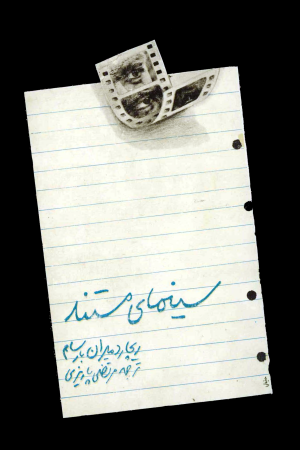 سینمای مستند
ریچارد میران بارسام
ترجمه مرتضی پاریزی